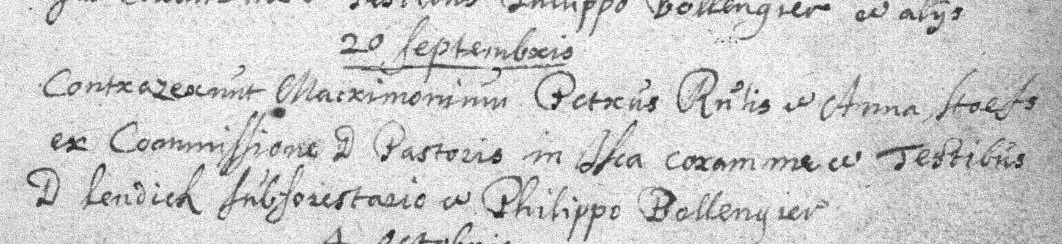 Philippo Bollengier et alijs
20 septembris
Contraxerunt Matrimonium Petrus Rulis et Anna stoefs
ex Commissione D Pastoris in Isca coram me et Testibus
D lendick subforestario et Philippo Bollengier
octobris